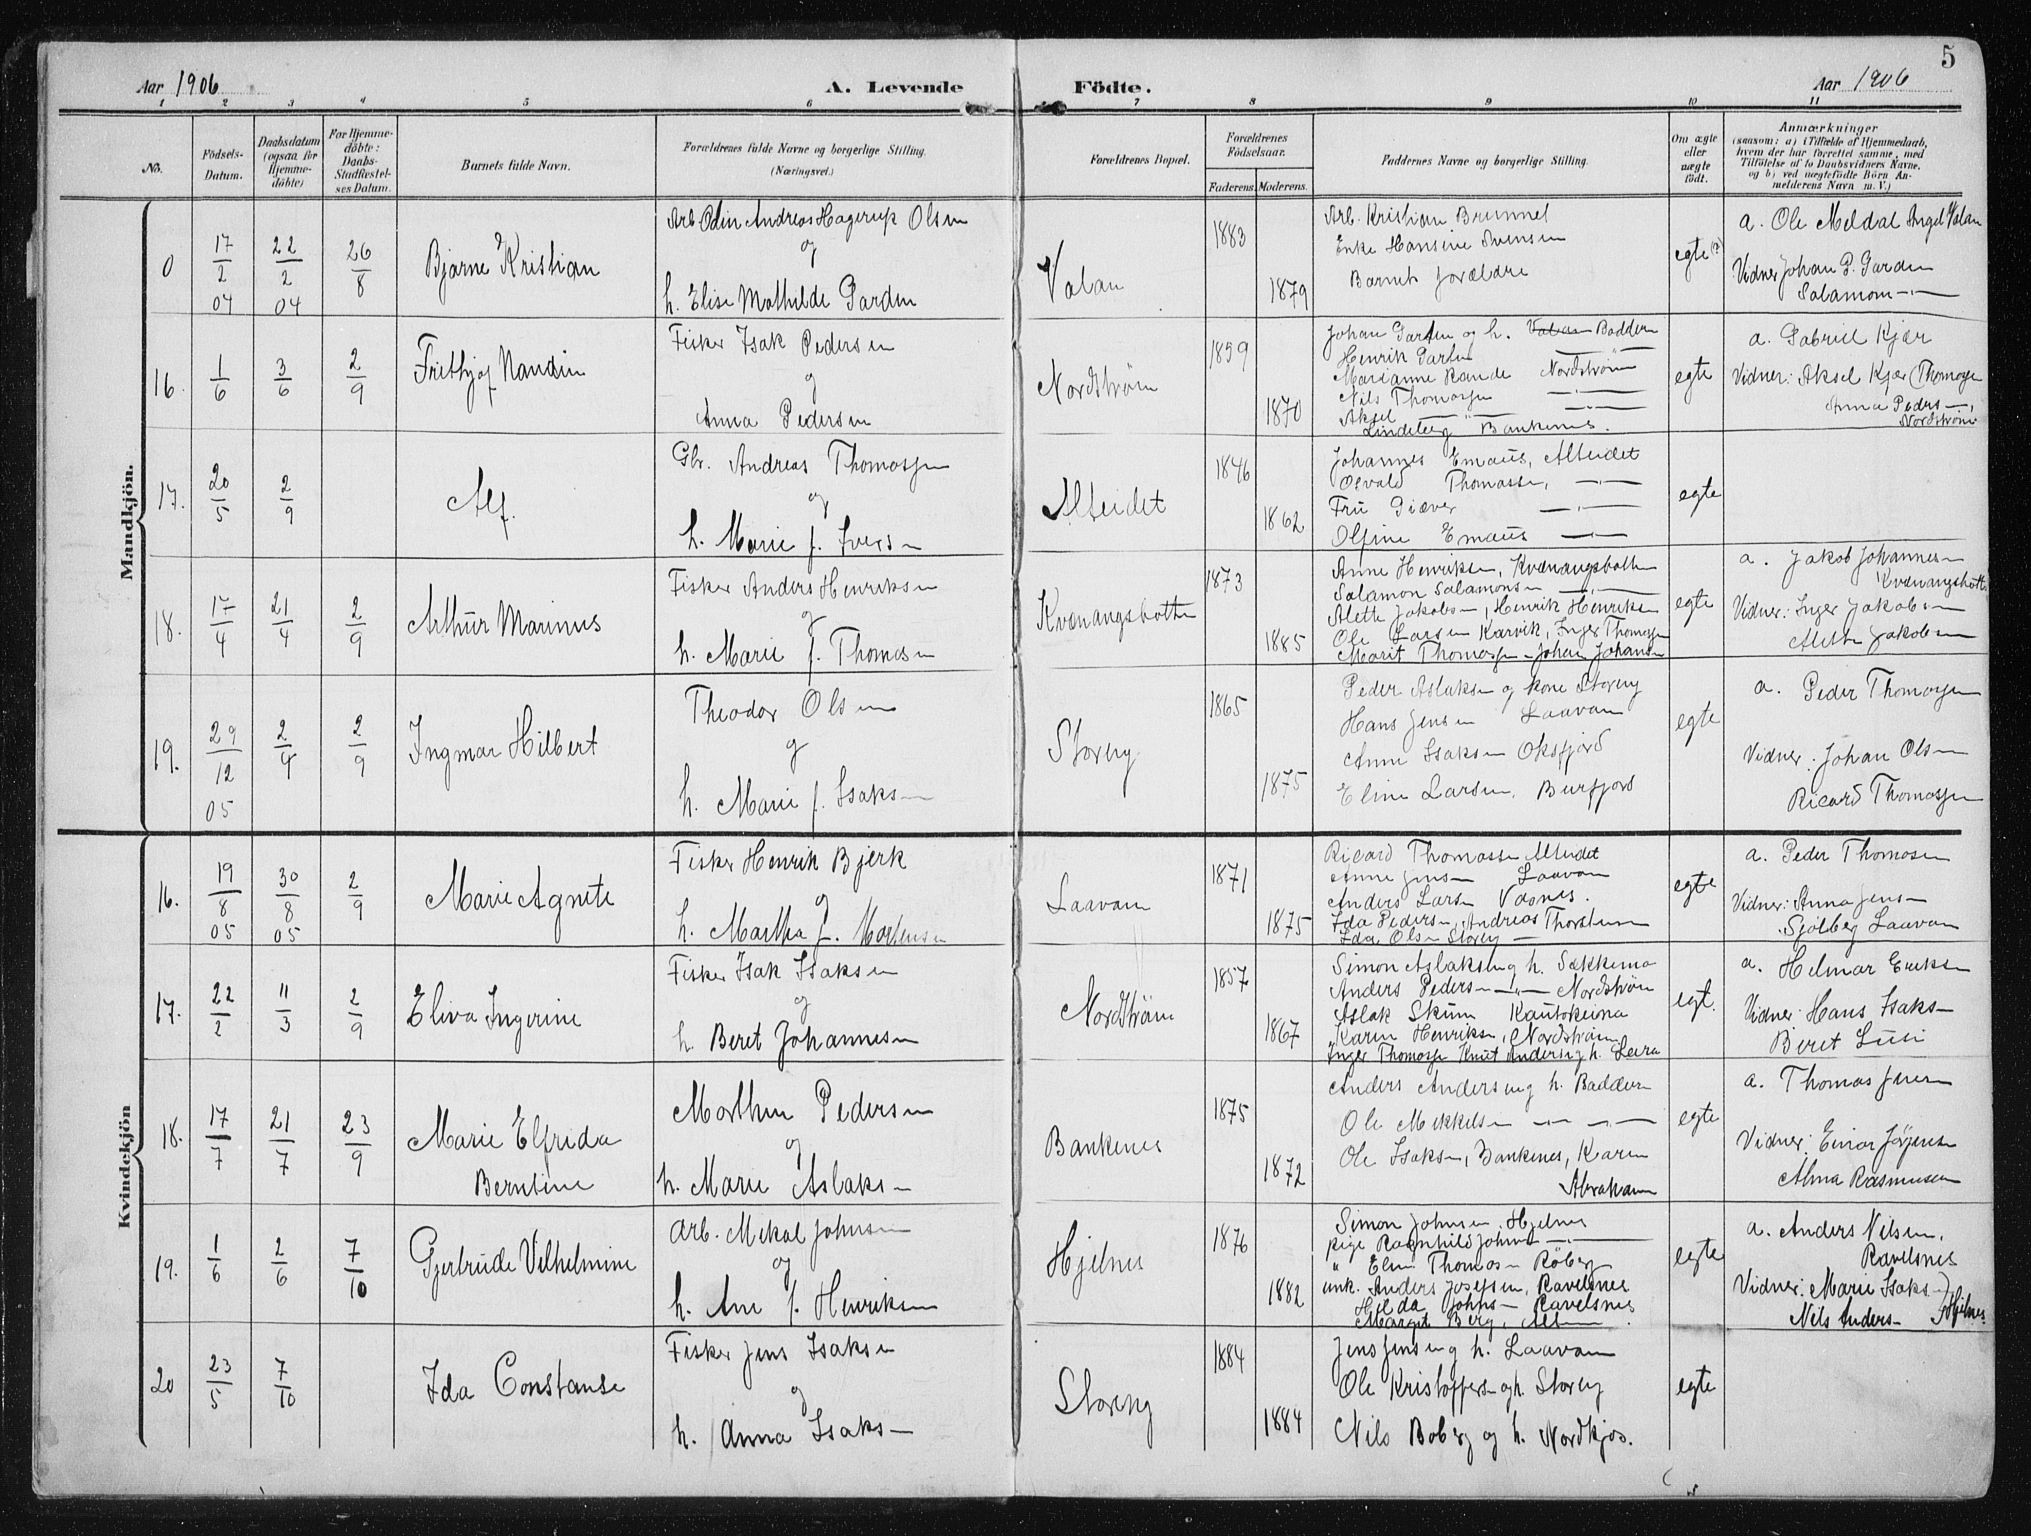 5
Aar 1906
A. Levende Födte.
Aar 1906
1 2 3 4 5 6 7 8 9 10 11
No.
Födsels-Datum.
Daabsdatum (ogsaa for Hjemme-döbte)
For Hjemme-döbte: Daabs-Stadfæstel-ses Datum.
Barnets fulde Navn.
Forældrenes fulde Navne og borgerlige Stilling. (Næringsvei.)
Forældrenes Bopæl.
Forældrenes Födselsaar.
Faderens. Moderens.
Faddernes Navne og borgerlige Stilling.
Om ægte eller uægte födt.
Anmærkninger
(saasom: a) i Tilfælde af Hjemmedaab,
hvem der har forrettet samme, med
Tilföielse af to Daabsvidners Navne,
og b) ved uægtefödte Börn An-
melderens Navn m. V.)
Mandkjön.
0
17/2 04
22/2 04
26/8
Bjarne Kristian
Arb. Odin Andreas Hagerup Olsen
og
h. Elise Mathilde Garden
Valan
1883
1879
Arb. Kristian Brunnel
Enke Hansine Svensen
Barnets forældre
egte (?)
a. Ole Meldal Valan
Vidner Johan P. Garden
Salamon —
16.
1/6
3/6
2/9
Frithjof Nandin
Fisker Isak Pedersen
og
Anna Pedersen
Nordstrøm
1859
1870
Johan Garden og h. Valan Baddern
Henrik Garden
Marianne Rande Nordstrøm
Nils Thomasen —
Aksel — —
Lindeberg Bankenes.
egte
a. Gabriel Kjær
Vidner: Aksel Kjær (Thomasen
Anna Peders—,
Nordstrøm
17.
20/5
2/9
Alf.
Gbr. Andreas Thomassen
og
h. Marie f. Ivers—
Alteidet
1846
1862
Johannes Emaus, Alteidet
Osvald Thomassen, —
Fru Giæver —
Olfine Emaus —
egte
18.
17/4
21/4
2/9
Arthur Marinus
Fisker Anders Henriksen
og
h. Marie f. Thomasen
Kvænangsbotten
1873
1885
Anne Henriksen, Kvænangsbotten
Salamon Salamons— —
Alette Jakobsen, Henrik Henriksen
Ole Larsen Karvik, Inger Thomasen
Marit Thomassen — Johan Johansen
egte
a. Jakob Johannesen
Kvænangsbotten
Vidner: Inger Jakobsen
Alette Jakobsen
19.
29/12 05
2/4
2/9
Ingmar Hilbert
Theodor Olsen
og
h. Marie f. Isaks—
Storeng
1865
1875
Peder Aslaksen og kone Storeng
Hans Jensen Laavan
Anne Isaksen Oksfjord
Eline Larsen, Burfjord
egte
a. Peder Thomasen
Vidner: Johan Olsen
Ricard Thomassen
Kvindekjön
16.
19/8 05
30/8 05
2/9
Marie Agnete
Fisker Henrik Bjerk
og
h. Martha f. Mortensen
Laavan
1871
1875
Ricard Thomassen Alteidet
Anne Jensen Laavan
Anders Larsen Vasnes.
Ida Pedersen, Andreas Thorstensen
Ida Olsen Storeng —
egte
a. Peder Thomasen
Vidner: Anna Jens—
Sjølberg Laavan
17.
22/2
11/3
2/9
Eliva Ingerine
Fisker Isak Isaksen
og
h. Beret Johannesen
Nordstrøm
1857
1867
Simon Aslaksen og h. Sækkemo
Anders Peders— — Nordstrøm
Aslak Skum Kautokeino
Karen Henriksen, Nordstrøm
Inger Thomassen Knut Anders— og h. Leira
egt.
a. Helmar Eriksen
Vidner: Hans Isaks—
Beret Lusi
18.
17/7
21/7
23/9
Marie Elfrida
Berntine
Morthen Pedersen
og
h. Marie Aslaks—
Bankenes
1875
1872
Anders Andersen og h. Baddern
Ole Mikkelsen — —
Ole Isaksen, Bankenes, Karen
Abraham
egte
a. Thomas Jensen
Vidner: Einar Jörgensen
Alma Rasmussen
19.
1/6
2/6
7/10
Gjertrude Vilhelmine
Arb. Mikal Johnsen
og
h. Ane f. Henriksen
Hjelnes
1876
1882
Simon Johnsen, Hjelnes
pige Ragnhild Johns— —
" Elen Thomas— Røberg
unk. Anders Josefsen, Ravelsnes
Hilda Johns— Ravelsnes
Margit Berg, Alt—
egte
a. Anders Nilsen,
Ravelsnes
Vidner: Marie Isaks—
Nils Anders— Hjelnes
20
23/5
7/10
Ida Constanse
Fisker Jens Isaksen
og
h. Anna Isaks—
Storeng
1884
1884
Jens Jensen og h. Laavan
Ole Kristoffers— og h. Storeng
Nils Boberg og h. Nordkjos.
egte